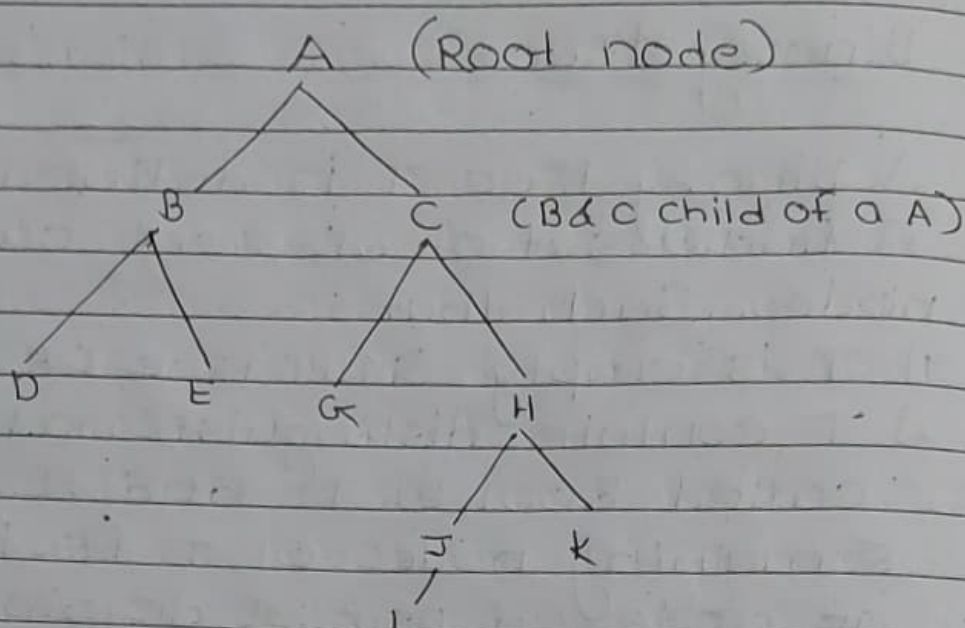 A (Root node)
B C (B & C child of a A)
D E G H
J K